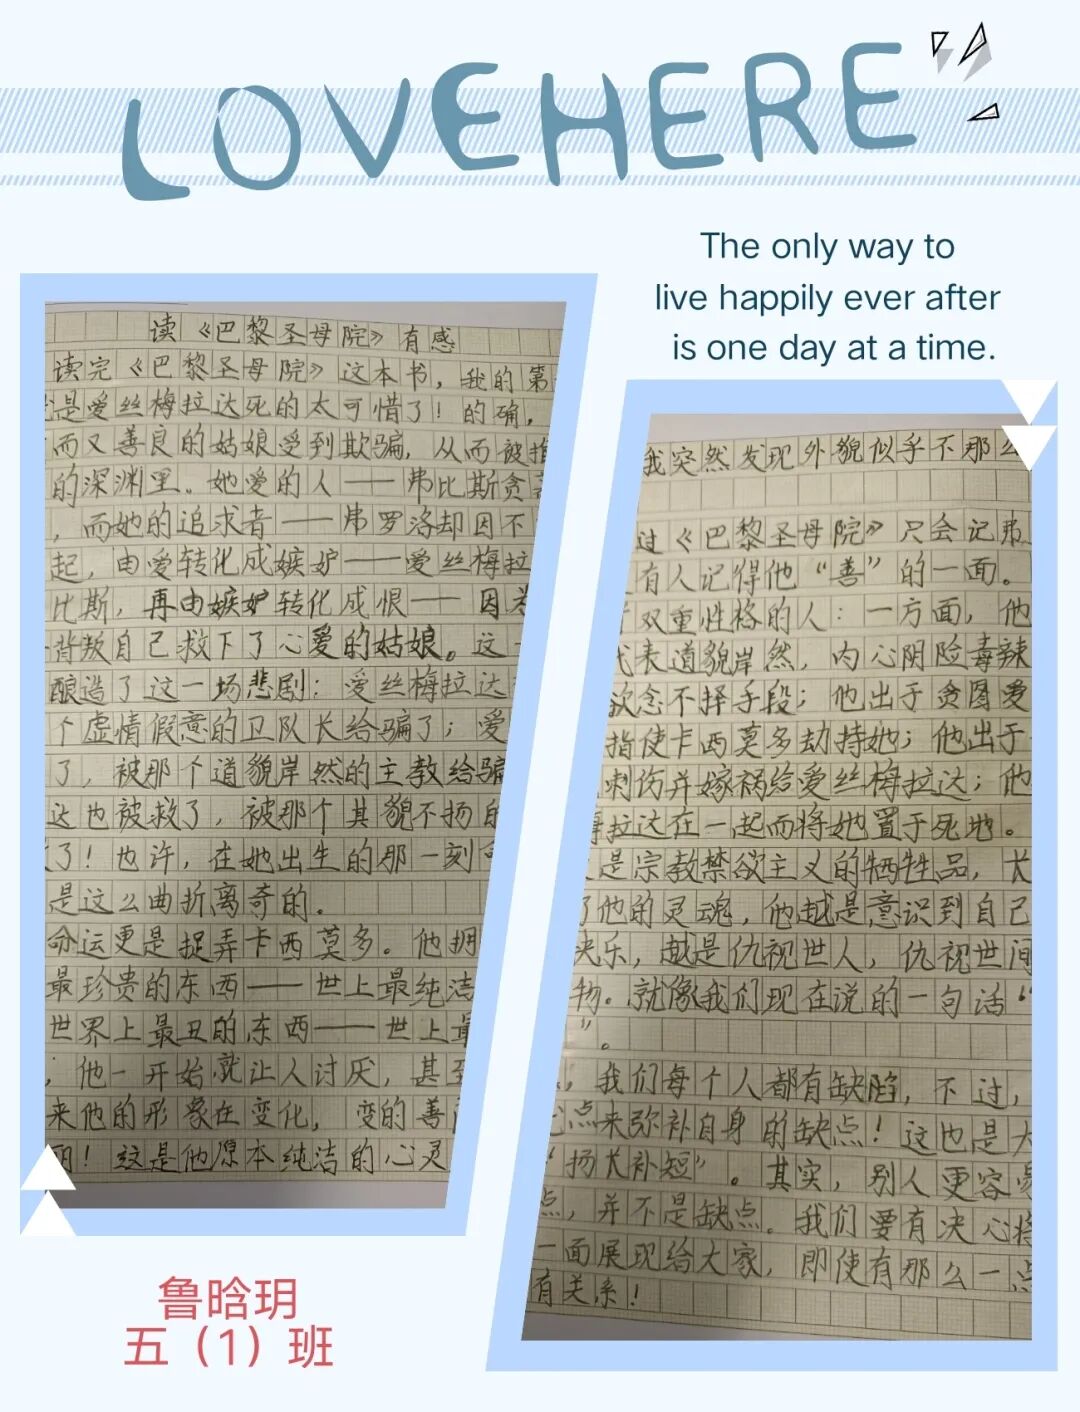 LOVEHERE
The only way to
live happily ever after
is one day at a time.
读《巴黎圣母院》有感
读完《巴黎圣母院》这本书，我的第
是爱丝梅拉达死的太可惜了！的确，
而又善良的姑娘受到欺骗，从而被推
的深渊里。她爱的人——弗比斯贪
，而她的追求者——弗罗洛却因不
起，由爱转化成嫉妒——爱丝梅拉
比斯，再由嫉妒转化成恨——因为
背叛自己救下了心爱的姑娘。这一
酿造了这一场悲剧：爱丝梅拉达
个虚情假意的卫队长给骗了；爱
了，被那个道貌岸然的主教给骗
达也被救了，被那个其貌不扬的
了！也许，在她出生的那一刻命
是这么曲折离奇的。
命运更是捉弄卡西莫多。他拥
最珍贵的东西——世上最纯洁
世界上最丑的东西——世上最
，他一开始就让人讨厌，甚至
来他的形象在变化，变的善
丽！这是他原本纯洁的心灵
我突然发现外貌似乎不那么
过《巴黎圣母院》只会记弗
有人记得他“善”的一面。
双重性格的人：一方面，他
代表道貌岸然，内心阴险毒辣
欲念不择手段；他出于贪图爱
指使卡西莫多劫持她；他出于
刺伤并嫁祸给爱丝梅拉达；他
梅拉达在一起而将她置于死地。
是宗教禁欲主义的牺牲品，长
了他的灵魂，他越是意识到自己
快乐，越是仇视世人，仇视世间
物。就像我们现在说的一句话“
”。
，我们每个人都有缺陷，不过，
点来弥补自身的缺点！这也是大
“扬长补短”。其实，别人更容易
点，并不是缺点。我们要有决心将
一面展现给大家，即使有那么一点
有关系！
鲁晗玥
五（1）班